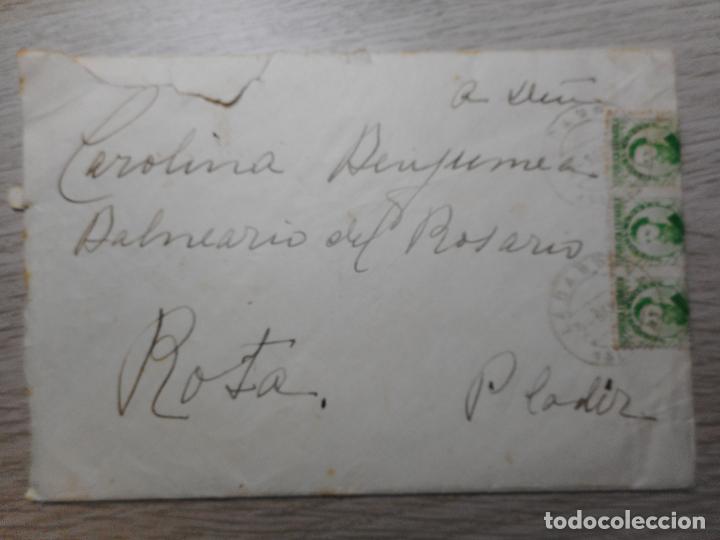 Carolina Benjumea
Balneario del Rosario
Rota.
P Cadiz
todocoleccion